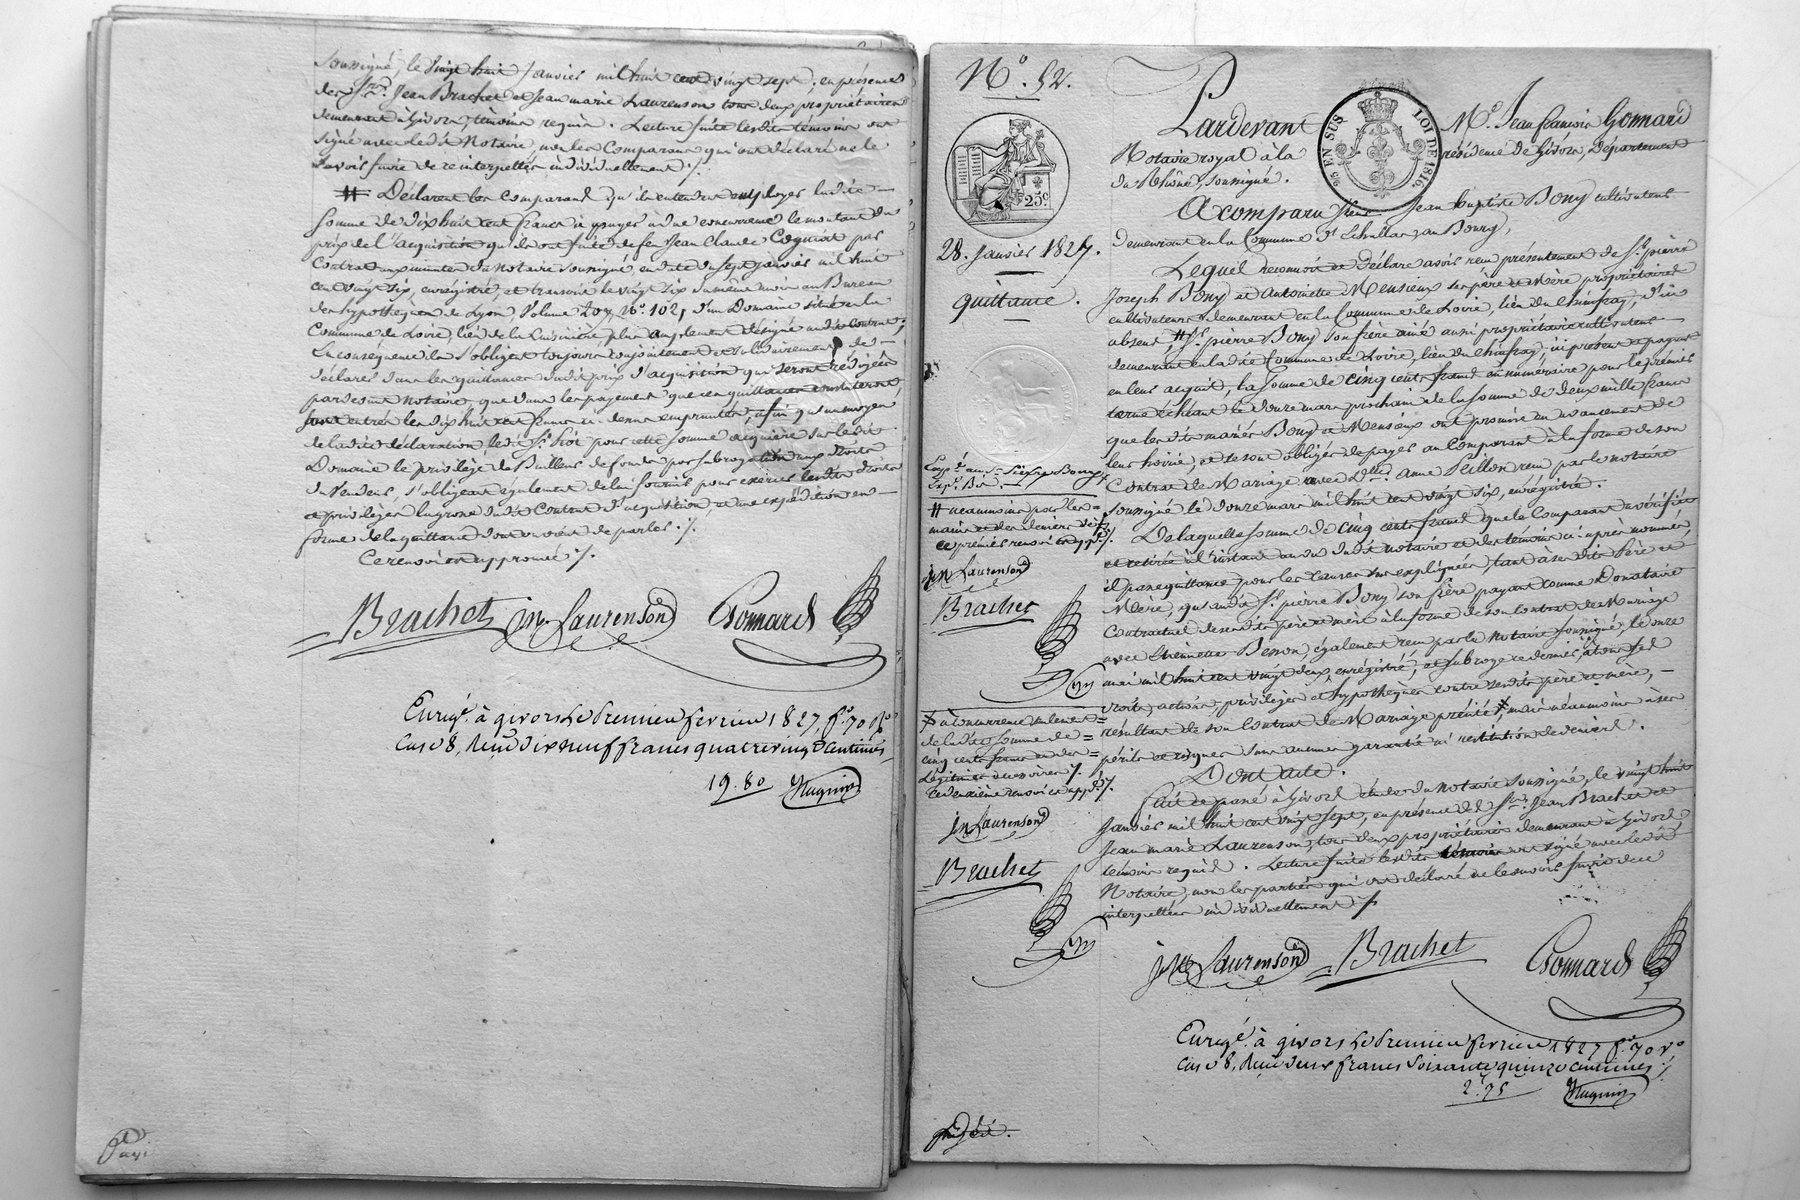 soussigné, le vingt huit Janvier mil huit cent vingt sept, en présence
des Srs. Jean Brachet et Jean marie Laurenson tous deux propriétaires
demeurant à Givors, témoins requis. Lecture faite lesdits témoins ont
signé avec ledit Notaire, non les Comparans qui ont déclaré ne le
savoir faire de ce interpellés individuellement /.
# Déclarent les comparans qu'ils entendent employer ladite
somme de dix huit cent francs à payer à due concurrence le montant du
prix de l'acquisition qu'ils ont faite de feu Jean Claude Cognat par
Contrat aux minutes du Notaire soussigné, en date du sept Janvier mil huit
cent vingt six, enrégistré, et transcrit le vingt six du même mois au Bureau
des hypothèques de Lyon, Volume N°. 102, d'un Domaine situé en la
Commune de Loire, lieu de la plus amplement désigné audit Contrat;
En conséquence ils s'obligent toujours conjointement et solidairement de
déclarer dans les quittances dudit prix d'acquisition qui seront rédigées
pardevant Notaire, que dans les payemens que ces quittances constateront
sont entrés les dix huit cent francs ci-dessus empruntés, afin qu'au moyen
de ladite déclaration ledit Sr. pour cette somme acquière sur ledit
Domaine le privilège de Bailleur de fonds par subrogation aux droits
du Vendeur, s'obligeant également de lui fournir pour exercer lesdits droits
et privilèges la grosse dudit Contrat d'acquisition, et une expédition en
forme de la quittance dont on vient de parler /.
Ce renvoi est approuvé /.
Brachet Jn. Laurenson Gonnard
Enrgé. à givors le premier fevrier 1827, fo. 70 Ro
Case 8, Reçu dix neuf francs quatre vingt centimes
19.80
Payé
N°. 52.
25c
28. Janvier 1827.
quittance.
Expé. au Sr. Pierre Bony
# néanmoins par les
mains et des deniers de
ce premier renvoi est appé. /.
Jn Laurenson
Brachet
à Concurrence seulement
de ladite somme de
cinq cents francs et des
légitimes accessoires /.
ce deuxième renvoi est appé. /.
Jn Laurenson
Brachet
Pardevant Me. Jean françois Gonnard
25/c EN SUS LOI DE 1816.
Notaire royal à la résidence de Givors, département
du Rhône, soussigné.
A comparu sieur Jean baptiste Bony cultivateur
demeurant en la Commune d'Echallas, au Bourg,
Lequel reconnoit et déclare avoir reçu présentement de Sr. pierre
Joseph Bony et Antoinette Mensieux ses père et mère propriétaires
cultivateurs demeurant en la Commune de Loire, lieu du chinfray, d'ici
absens # Sr. pierre Bony son frère ainé aussi propriétaire cultivateur
demeurant en ladite Commune de Loire, lieu du chinfray, ici présent et payant
en leur acquit, la somme de cinq cents francs en numéraire, pour le premier
terme échéant le douze mars prochain de la somme de deux mille francs
que lesdits mariés Bony et Mensieux ont promise en avancement de
leur hoirie, et se sont obligés de payer au Comparant à la forme de son
Contrat de Mariage avec Dlle. anne Peillon reçu par le notaire
soussigné le douze mars mil huit cent vingt six, enrégistré.
De laquelle somme de cinq cents francs que le Comparant a vérifiée
et retirée à l'instant au vu dudit notaire et des témoins ci-après nommés
il passe quittance pour les causes sus expliquées, tant à ses dits Père et
Mère, qu'audit Sr. pierre Bony son frère payant comme Donataire
Contractuel de sesdits père et mère à la forme de son Contrat de Mariage
avec Besson également reçu par le Notaire soussigné, le onze
mai mil huit cent vingt deux, enrégistré, et subroge ce dernier, à tous ses
droits, actions, privilèges et hypothèques contre sesdits père et mère,
résultant de son Contrat de Mariage précité, mais néanmoins à ses
périls et risques sans aucune garantie ni restitution de deniers.
Dont acte.
fait et passé à Givors étude du Notaire soussigné, le vingt huit
Janvier mil huit cent vingt sept, en présence des Srs. Jean Brachet et
Jean marie Laurenson, tous deux propriétaires demeurant à Givors,
témoins requis. Lecture faite lesdits témoins ont signé avec ledit
Notaire, non les parties qui ont déclaré ne le savoir faire de ce
interpellées individuellement /.
Jn Laurenson Brachet Gonnard
Enrgé. à givors le premier fevrier 1827 fo. 70 Vo
Case 8, Reçu deux francs soixante quinze centimes /.
2f.75